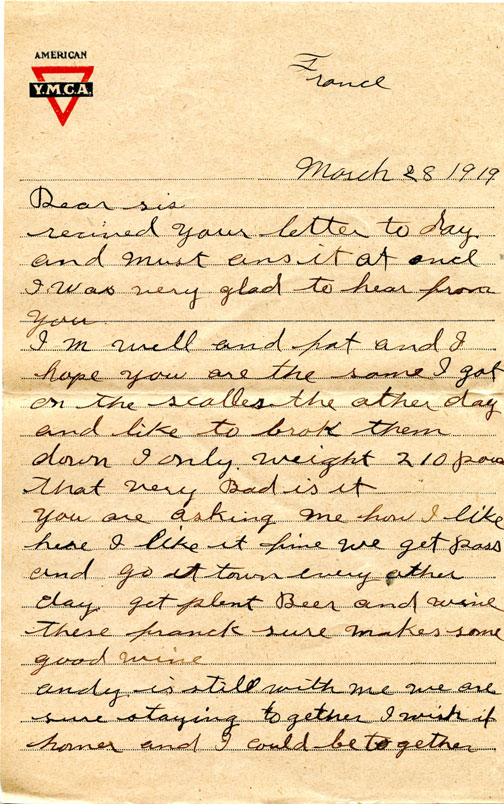 AMERICAN
Y.M.C.A.
France
March 28 1919
Dear sis
recived your letter to day
and must ans it at once
I was very glad to hear from
you
I m well and fat and I
hope you are the same I got
on the scalles the other day
and like to brok them
down I only weight 210 poun
that very Bad is it
you are asking me how I like
here I like it fine we get pass
and go it town every other
day get plent Beer and wine
these franck sure makes some
good wine
andy is still with me we are
sure staying together I wish if
homer and I could be together